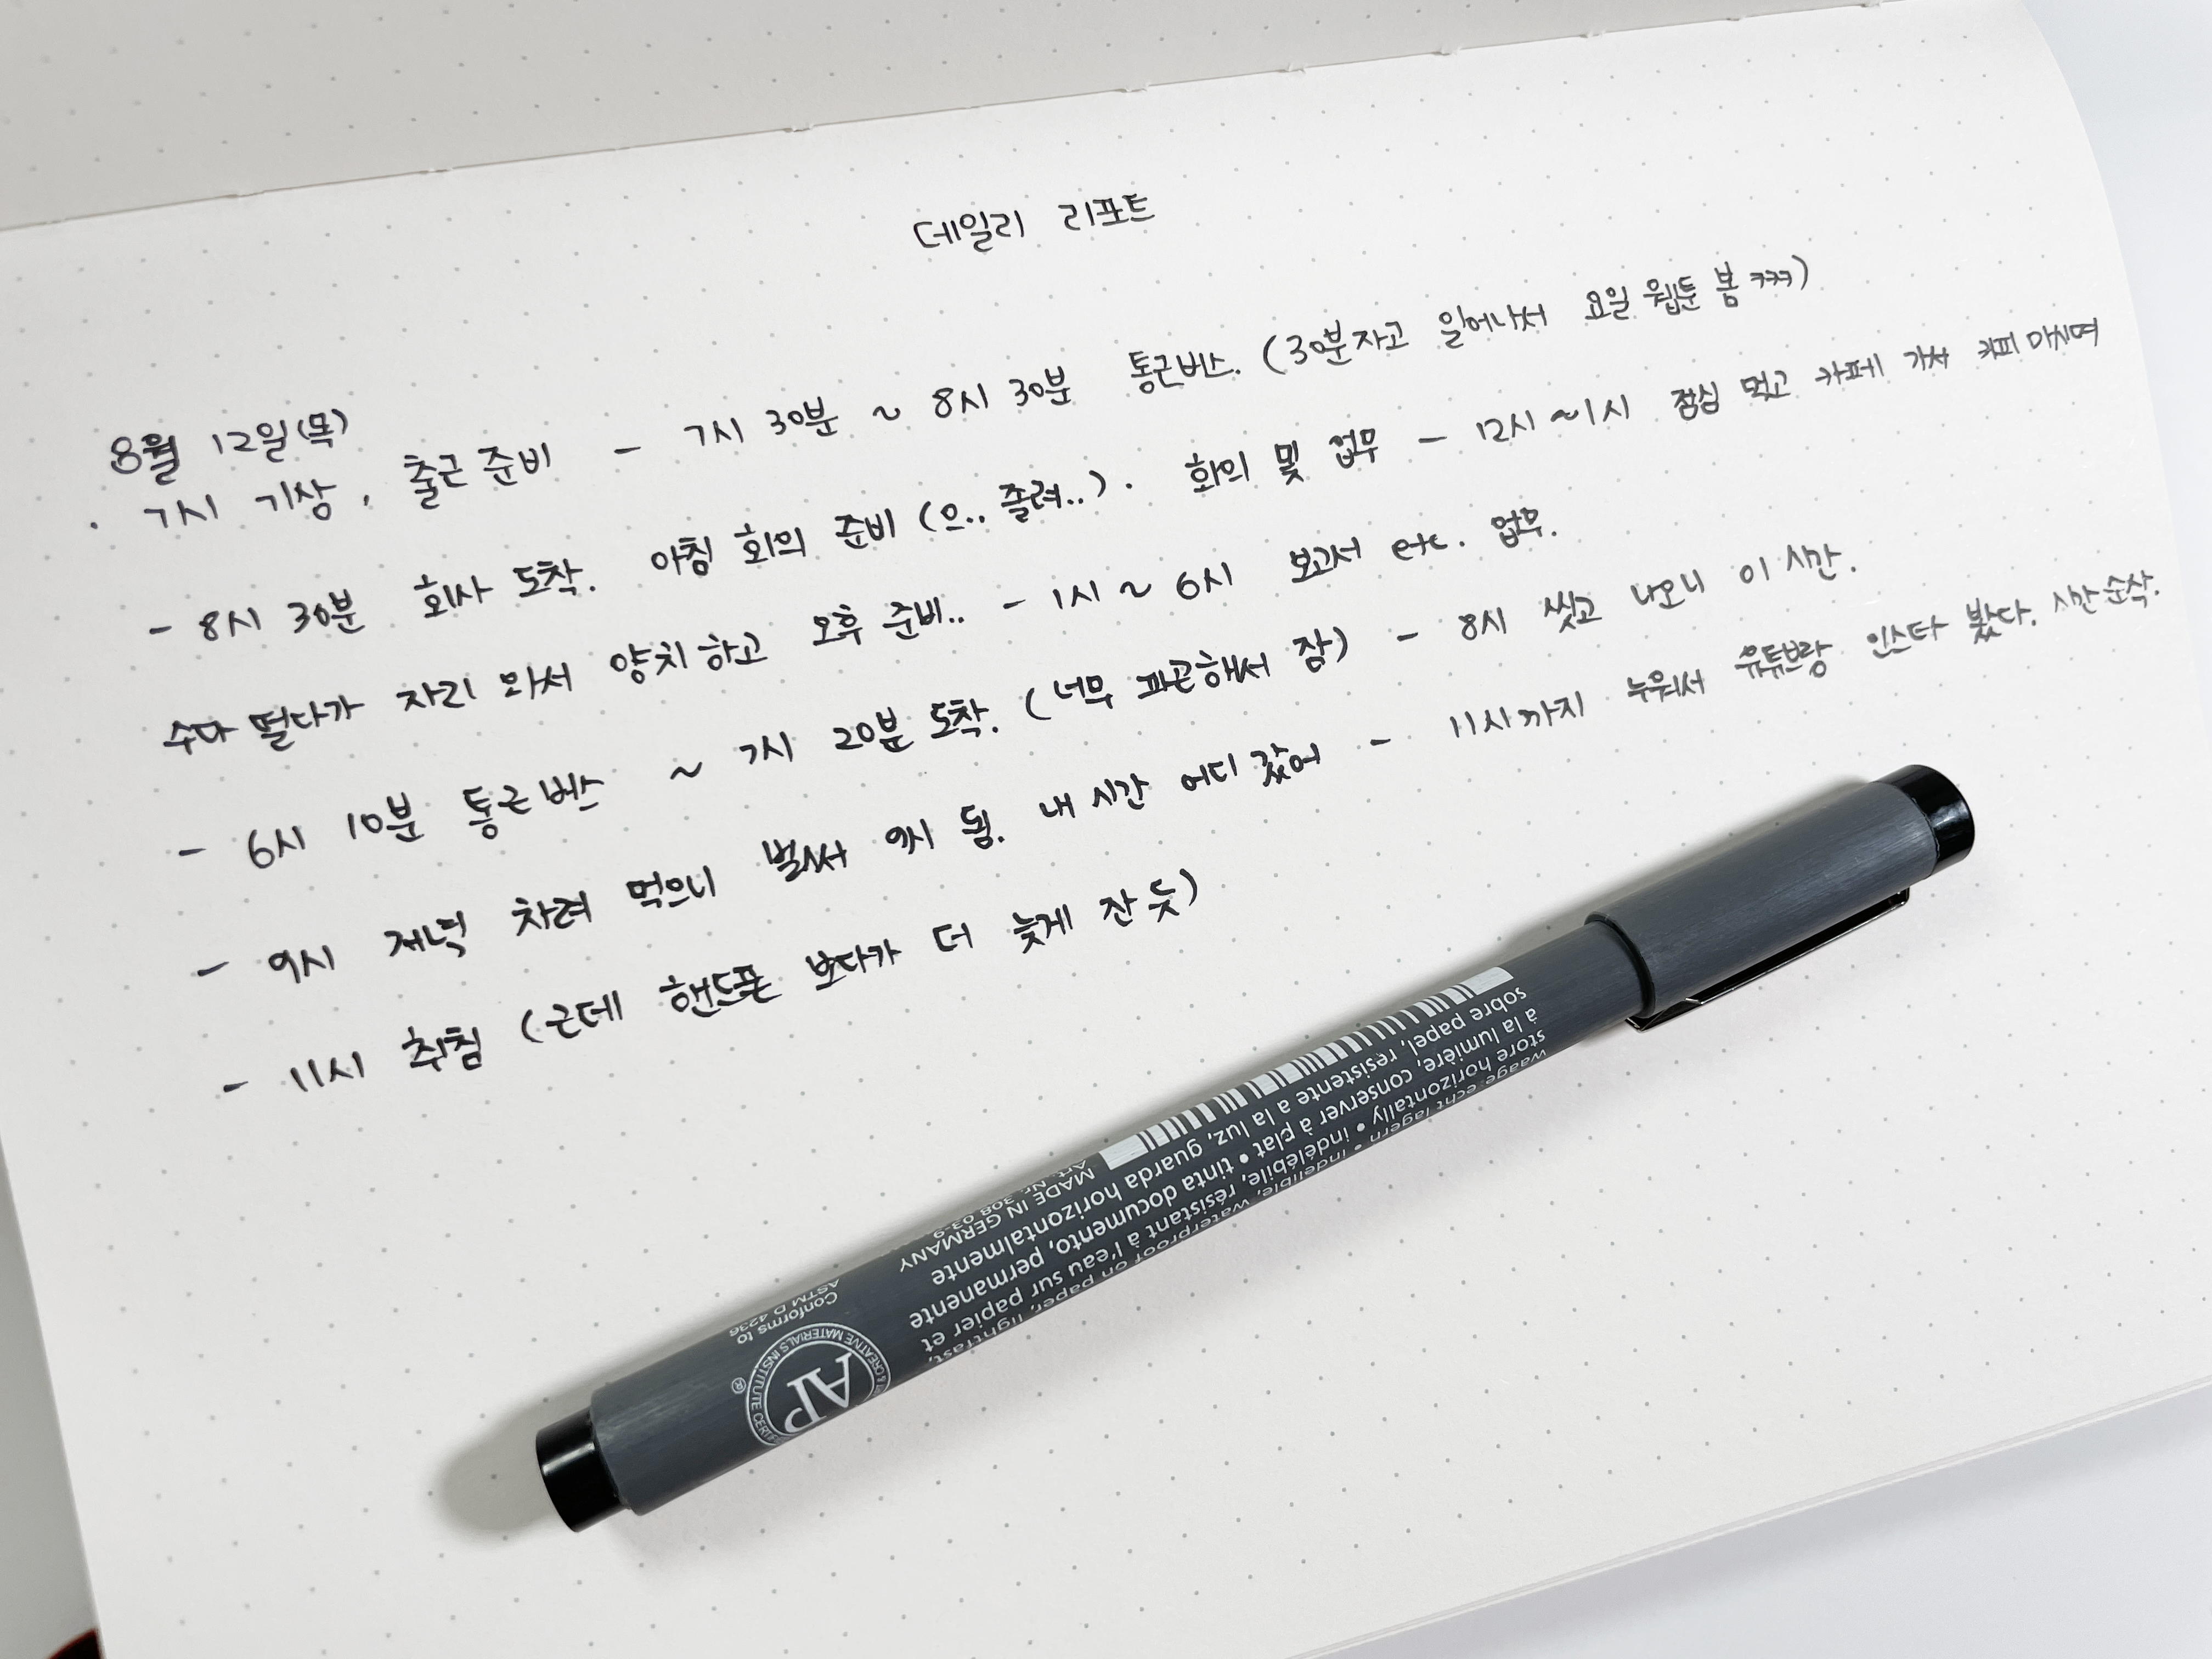 데일리 리포트
8월 12일(목)
· 7시 기상, 출근 준비 - 7시 30분 ~ 8시 30분 통근버스. (30분자고 일어나서 요일 웹툰 봄 ㅋㅋㅋ)
- 8시 30분 회사 도착. 아침 회의 준비 (으.. 졸려..). 회의 및 업무 - 12시 ~1시 점심 먹고 카페 가서 커피 마시며
수다 떨다가 자리 와서 양치하고 오후 준비.. - 1시 ~ 6시 보고서 etc. 업무.
- 6시 10분 통근버스 ~ 7시 20분 도착. (너무 피곤해서 잠) - 8시 씻고 나오니 이 시간.
- 9시 저녁 차려 먹으니 벌써 9시 됨. 내 시간 어디 갔어 - 11시까지 누워서 유튜브랑 인스타 봤다. 시간 순삭.
- 11시 취침 (근데 핸드폰 보다가 더 늦게 잔 듯)
waterproof on paper, lightfast,
résistant à l'eau sur papier et
tinta documento, permanente
guarda horizontalmente
MADE IN GERMANY
store horizontally • indélébile,
à la lumière, conserver à plat •
sobre papel, resistente a la luz,
Conforms to
ASTM D 4236
AP
CREATIVE MATERIALS INSTITUTE
®